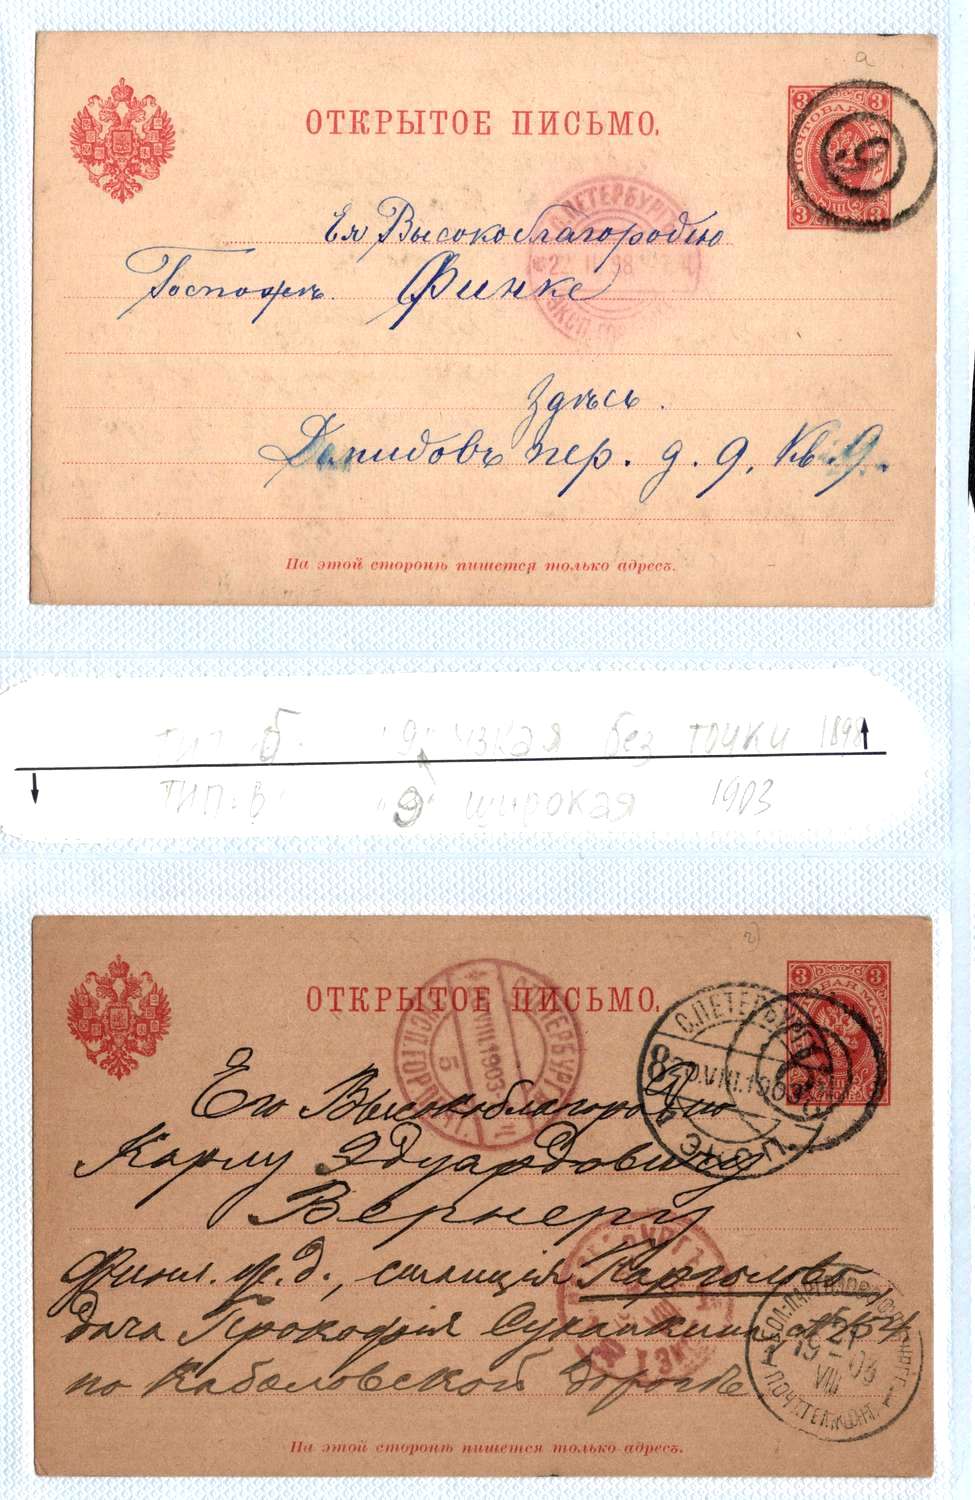 а
ОТКРЫТОЕ ПИСЬМО.
3 3
ПОЧТОВАЯ
3 3
9
С.ПЕТЕРБУРГЪ
Ея Высокоблагородію
Госпожѣ Финке
Здѣсь.
Демидовъ пер. д. 9, Кв. 9.
На этой сторонѣ пишется только адресъ.
тип б. "9" узкая без точки 1898
тип в "9" широкая 1903
г)
ОТКРЫТОЕ ПИСЬМО.
3 3
С.ПЕТЕРБУРГЪ
VIII.1903
5
С.ПЕТЕРБУРГЪ
8 20.VIII.1903
9
Его Высокоблагородію
Карлу Эдуардовичу
Вернеру
Финл. ж. д., станція Парголово
дача Прокофія Сукапкина № 254
по Кабаловской дорогѣ
21
19 03
VIII
На этой сторонѣ пишется только адресъ.